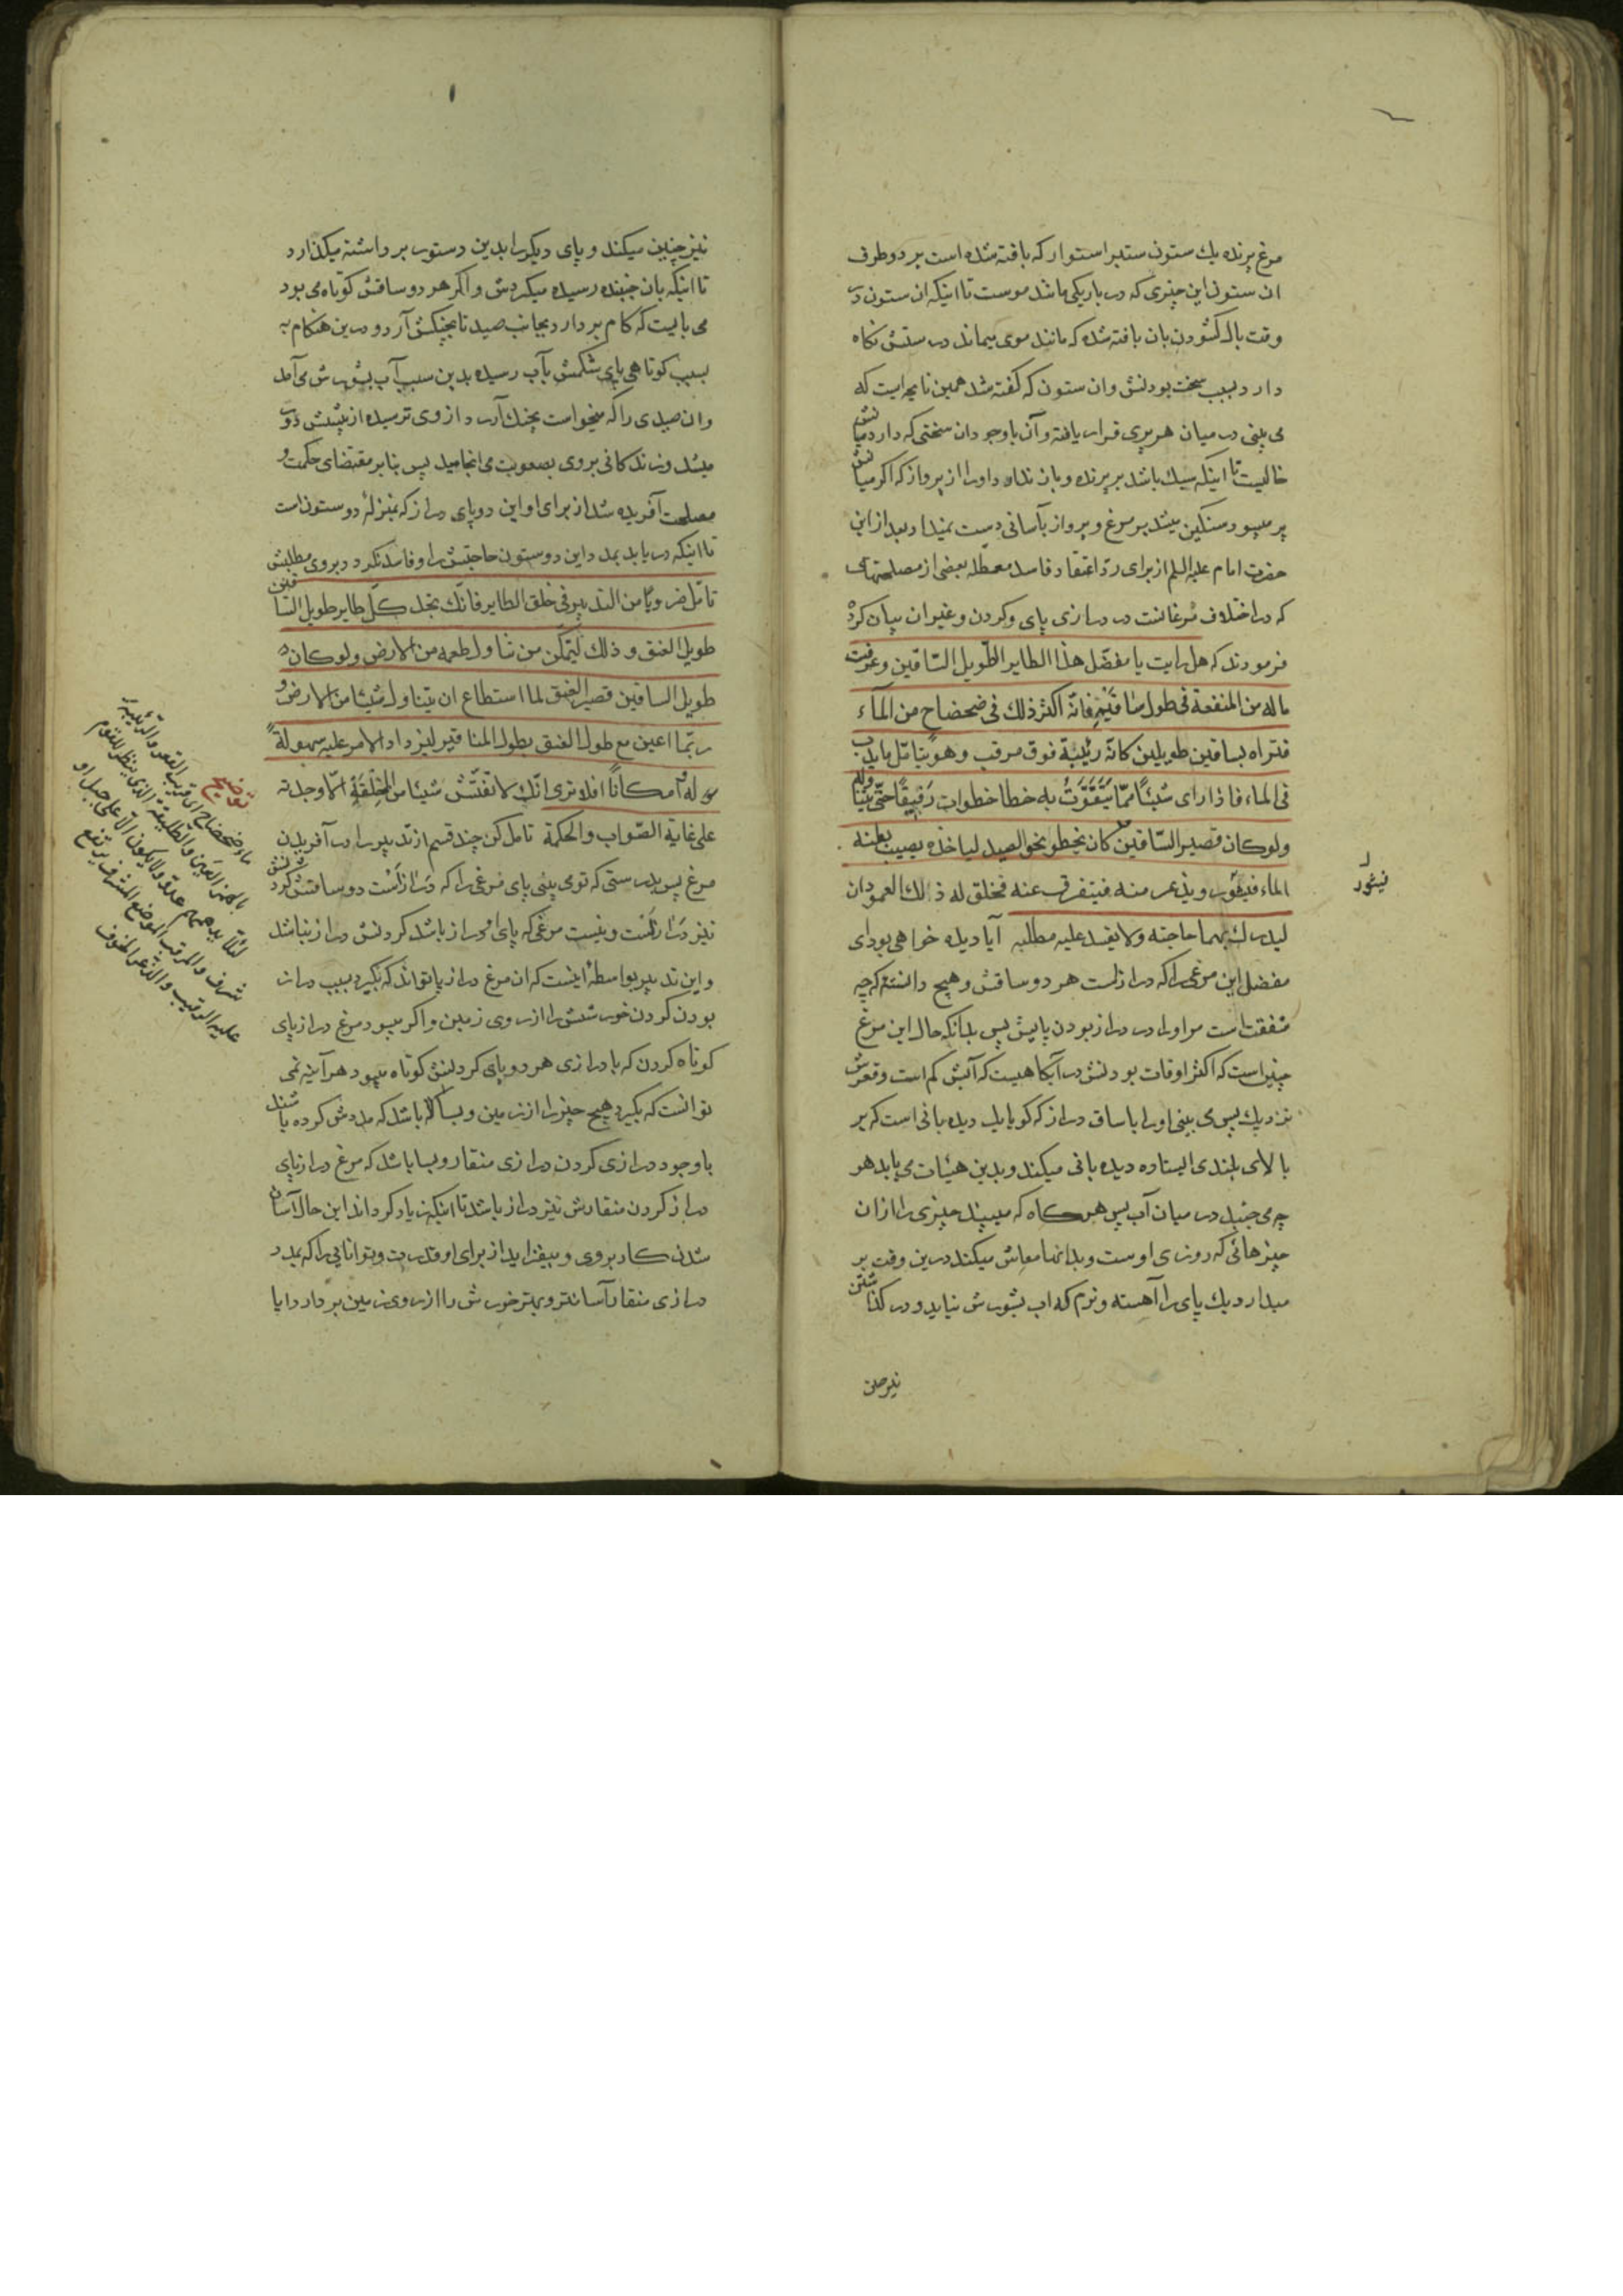 مرغ پرنده یك ستون ستبر استوار که بافته شده است بر دو طرف
ان ستون این چیزی که در باریکی مانند موست تا اینکه ان ستون در
وقت بال کشودن بان بافته شده که مانند موی میماند در ستنش نکاه
دارد بسبب سخت بودنش وان ستون که کفته شد همین نایچه ایست که
می بینی در میان هر پری قرار یافته و آن با وجود ان سختی که دارد میانش
خالیست تا اینکه سبك باشد بر پرنده و باز ندارد او را از پرواز که اکر میانش
پر میبود سنکین میشد بر مرغ و پرواز بآسانی دست نمیداد بعد از این
حضرت امام علیه السلم از برای رد اعتقاد فاسد معطله بعضی از مصلحتهای
که در اختلاف مرغانست در درازی پای و کردن و غیر ان بیان کرد
فرمودند که هل رایت یا مفضّل هذا الطایر الطّویل السّاقین وعرفت
ماله من المنفعة فی طول ساقَیْه فانّه اکثر ذلك فی ضحضاح من المآء
فتراه بساقین طویلین کانّه رَبیئة فوق مرقب وهو یتامّل ما یدبّ
فی الماء فاذا رای شیئًا ممّا یَتَقَوَّتُ به خطا خطوات رقیقًا حتّی یتناوله
ولو کان قصیر السّاقین کان یخطو نحو الصید لیاخذه یصیب بطنه
الماء فیثور ویذعر منه فیتفرق عنه فخلق له ذلك العمودان
لیدرك بهما حاجته ولا یفسد علیه مطلبه آیا دیده خواهی بود ای
مفضل این مرغی را که درازست هر دو ساقش و هیچ دانسته که چه
منفعتست مر او را در دراز بودن پایش پس بدانکه حال این مرغ
چنین است که اکثر اوقات بودنش در آبکاهیست که آبش کم است و قعرش
نزدیك پس می بینی او را با ساق دراز که کویا یك دیده بانی است که بر
بالای بلندی ایستاده دیده بانی میکند و بدین هیئات می یابد هر
چه می جنبد در میان آب پس هر کاه که میبیند چیزی را از ان
چیزهائی که روزی اوست و بدانها معاش میکند درین وقت بر
میدارد یك پای را آهسته و نرم که اب بشورش نیاید و در کذاشتن
نیز چنین
فیثور
نیز چنین میکند و پای دیکر را بدین دستور برداشته میکذارد
تا اینکه بان جنبنده رسیده میکردش و اکر هر دو ساقش کوتاه می بود
می بایست که کام بردارد بجانب صید تا بچنکش آرد و درین هنکام به
بسبب کوتاهی پای شکمش بآب رسیده بدین سبب آب بشورش می آمد
وان صیدی را که میخواست بچنك آرد از وی ترسیده از پیشش دور
میشد وزندکانی بر وی بصعوبت می انجامید پس بنابر مقتضای حکمت و
مصلحت آفریده شد از برای او این دو پای دراز که بمنزلهٔ دو ستون است
تا اینکه دریابد بمدد این دو ستون حاجتش را و فاسد نکردد بروی مطلبش
تامّل ضروبًا من التدبیر فی خلق الطایر فانّك تجد کلّ طایر طویل السّاقین
طویل العنق و ذلك لیتمکّن من تناول طعمه من الارض ولو کان
طویل الساقین قصیر العنق لما استطاع ان یتناول شیئًا من الارض و
ربّما اعین مع طول العنق بطول المناقیر لیزداد الامر علیه سهولةً
له امکانًا افلا تری انّك لا تفتّش شیئًا من الخلقةِ الّا وجدته
علی غایة الصّواب والحکمة تامل کن چند قسم از تدبیر را در آفریدن
مرغ پس بدرستی که تو می بینی پای مرغی را که درازست دو ساقش کردنش
نیز درازست ونیست مرغی که پای او دراز باشد کردنش دراز نباشد
واین تدبیر بواسطهٔ اینست که ان مرغ دراز پا تواند که بکیرد بسبب دراز
بودن کردن خورشش را از روی زمین و اکر میبود مرغ دراز پای
کوتاه کردن که با درازی هر دو پای کردنش کوتاه میبود هر آینه نمی
توانست که بکیرد هیچ چیز را از زمین و بسا باشد که مددش کرده باشند
با وجود درازی کردن درازی منقار و بسا باشد که مرغ دراز پای
دراز کردن منقارش نیز دراز باشد تا اینکه زیاد کرداند این حال آسان
شدن کار بروی و بیفزاید از برای او قدرت و توانایی را که بمدد
درازی منقار آسانتر و بهتر خورش را از روی زمین بردارد ایا
توضیح
ماء ضحضاح ای قریب القعر والربیئة
بالهمز العین والطلیعة الذی ینظر للقوم
لئلا یدهمهم عدوّ ولا یکون الّا علی جبل او
شرف والمرقب الموضع المشرف یرتفع
علیه الرقیب والذّعر الخوف